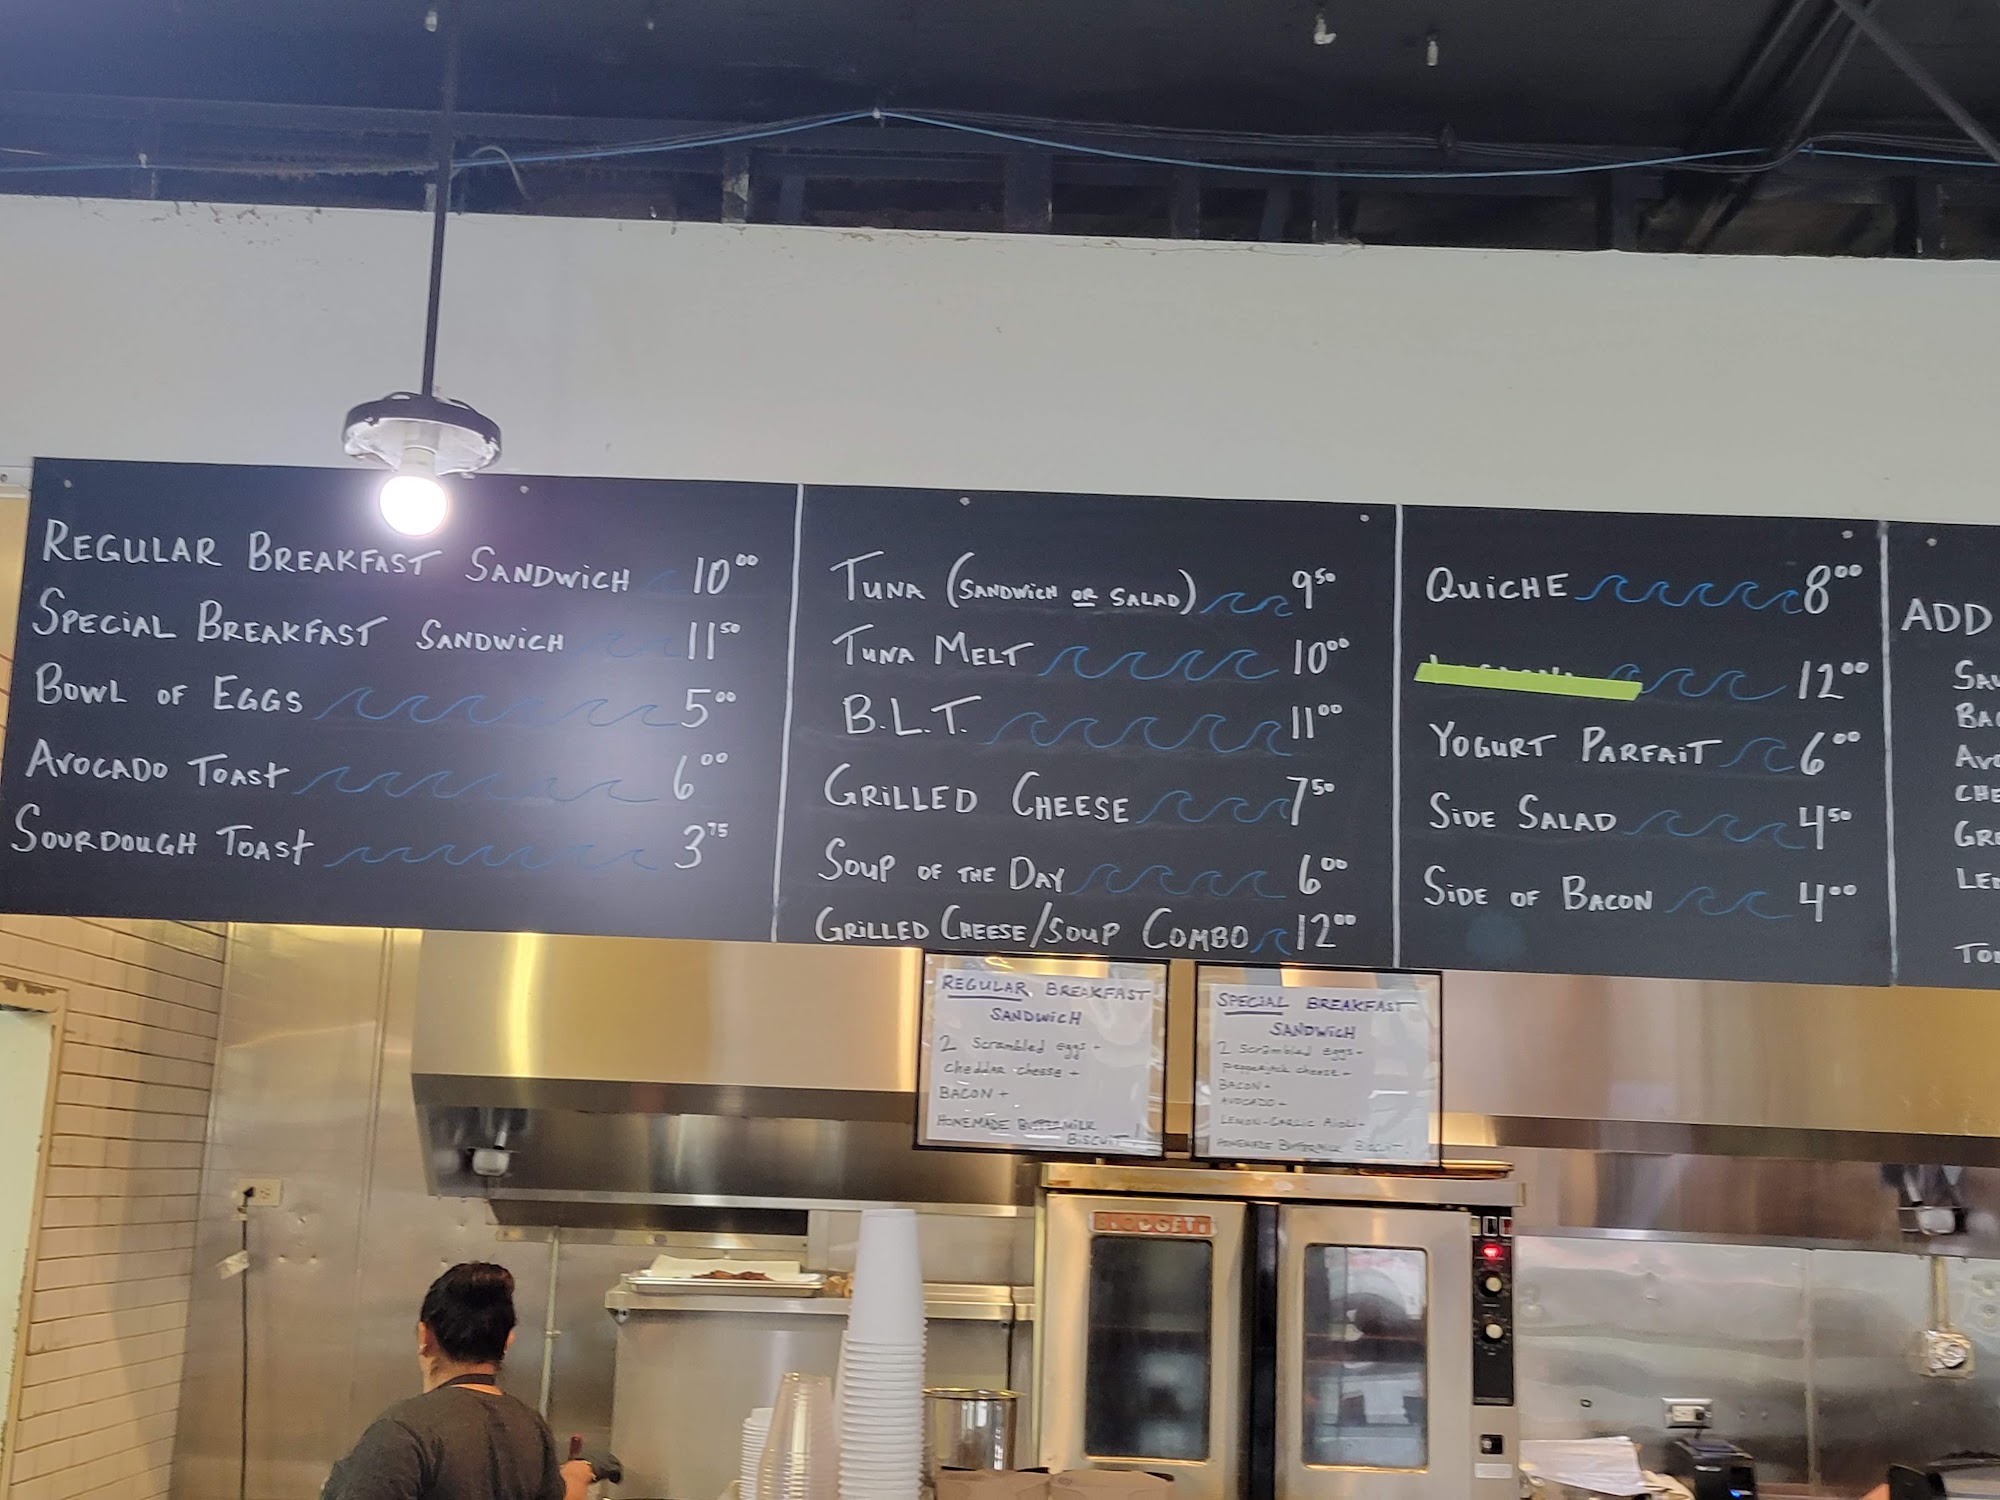 REGULAR BREAKFAST SANDWICH 10⁰⁰
SPECIAL BREAKFAST SANDWICH 11⁵⁰
BOWL OF EGGS 5⁰⁰
AVOCADO TOAST 6⁰⁰
SOURDOUGH TOAST 3⁷⁵
TUNA (SANDWICH OR SALAD) 9⁵⁰
TUNA MELT 10⁰⁰
B.L.T. 11⁰⁰
GRILLED CHEESE 7⁵⁰
SOUP OF THE DAY 6⁰⁰
GRILLED CHEESE/SOUP COMBO 12⁰⁰
QUICHE 8⁰⁰
12⁰⁰
YOGURT PARFAIT 6⁰⁰
SIDE SALAD 4⁵⁰
SIDE OF BACON 4⁰⁰
ADD
REGULAR BREAKFAST
SANDWICH
2 Scrambled eggs +
cheddar cheese +
BACON +
HOMEMADE BUTTERMILK
BISCUIT!
SPECIAL BREAKFAST
SANDWICH
2 Scrambled eggs +
pepperjack cheese +
BACON +
AVOCADO +
LEMON-GARLIC AIOLI +
HOMEMADE BUTTERMILK BISCUIT!
BLODGETT